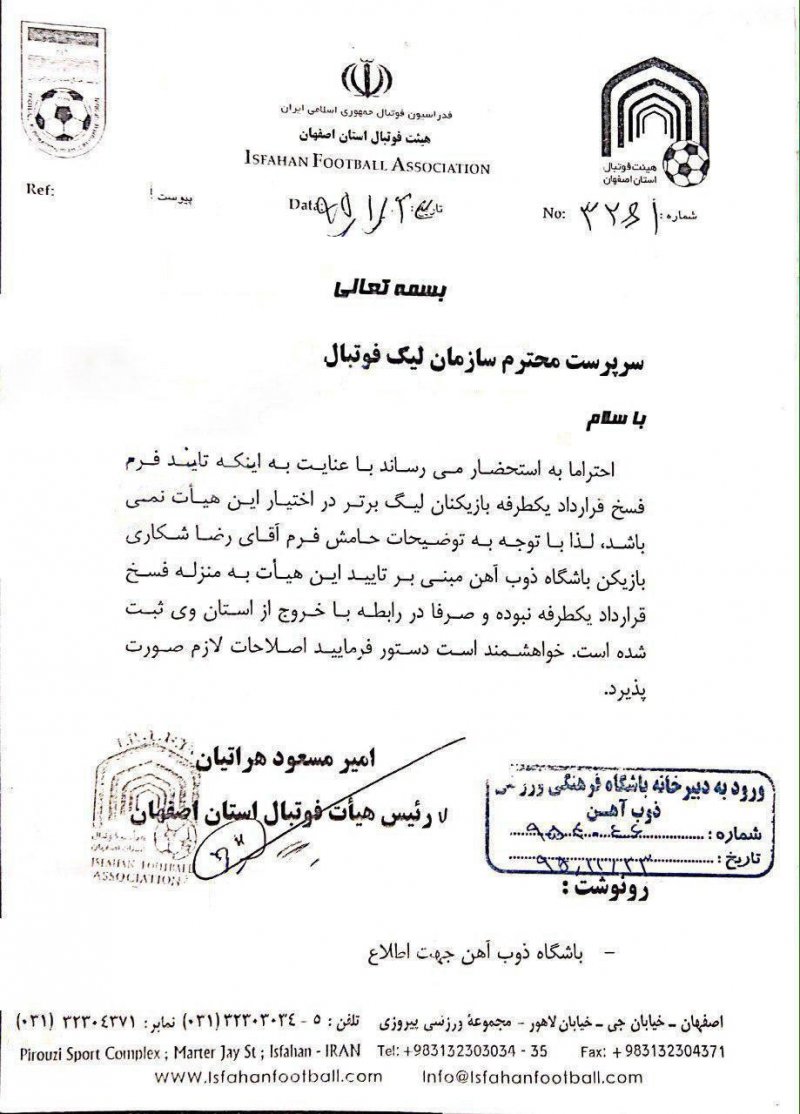 فدراسیون فوتبال جمهوری اسلامی ایران
هیئت فوتبال استان اصفهان
ISFAHAN FOOTBALL ASSOCIATION
هیئت فوتبال
استان اصفهان
Ref:
پیوست
Date:
تاریخ:
No: ۳۲۶۱ شماره:
بسمه تعالی
سرپرست محترم سازمان لیگ فوتبال
با سلام
احتراما به استحضار می رساند با عنایت به اینکه تایید فرم
فسخ قرارداد یکطرفه بازیکنان لیگ برتر در اختیار این هیأت نمی
باشد، لذا با توجه به توضیحات حامش فرم آقای رضا شکاری
بازیکن باشگاه ذوب آهن مبنی بر تایید این هیأت به منزله فسخ
قرارداد یکطرفه نبوده و صرفا در رابطه با خروج از استان وی ثبت
شده است. خواهشمند است دستور فرمایید اصلاحات لازم صورت
پذیرد.
امیر مسعود هراتیان
رئیس هیأت فوتبال استان اصفهان
ISFAHAN FOOTBALL
ASSOCIATION
ورود به دبیرخانه باشگاه فرهنگی ورزشی
ذوب آهن
شماره:
تاریخ: ۹۵،۱۲/۲۳
رونوشت:
- باشگاه ذوب آهن جهت اطلاع
اصفهان - خیابان جی - خیابان لاهور - مجموعهٔ ورزشی پیروزی تلفن: ۵ - ۳۲۳۰۳۰۳۴ (۰۳۱) نمابر: ۳۲۳۰۴۳۷۱ (۰۳۱)
Pirouzi Sport Complex ; Marter Jay St ; Isfahan - IRAN Tel: +983132303034 - 35 Fax: + 983132304371
www.Isfahanfootball.com Info@Isfahanfootball.com